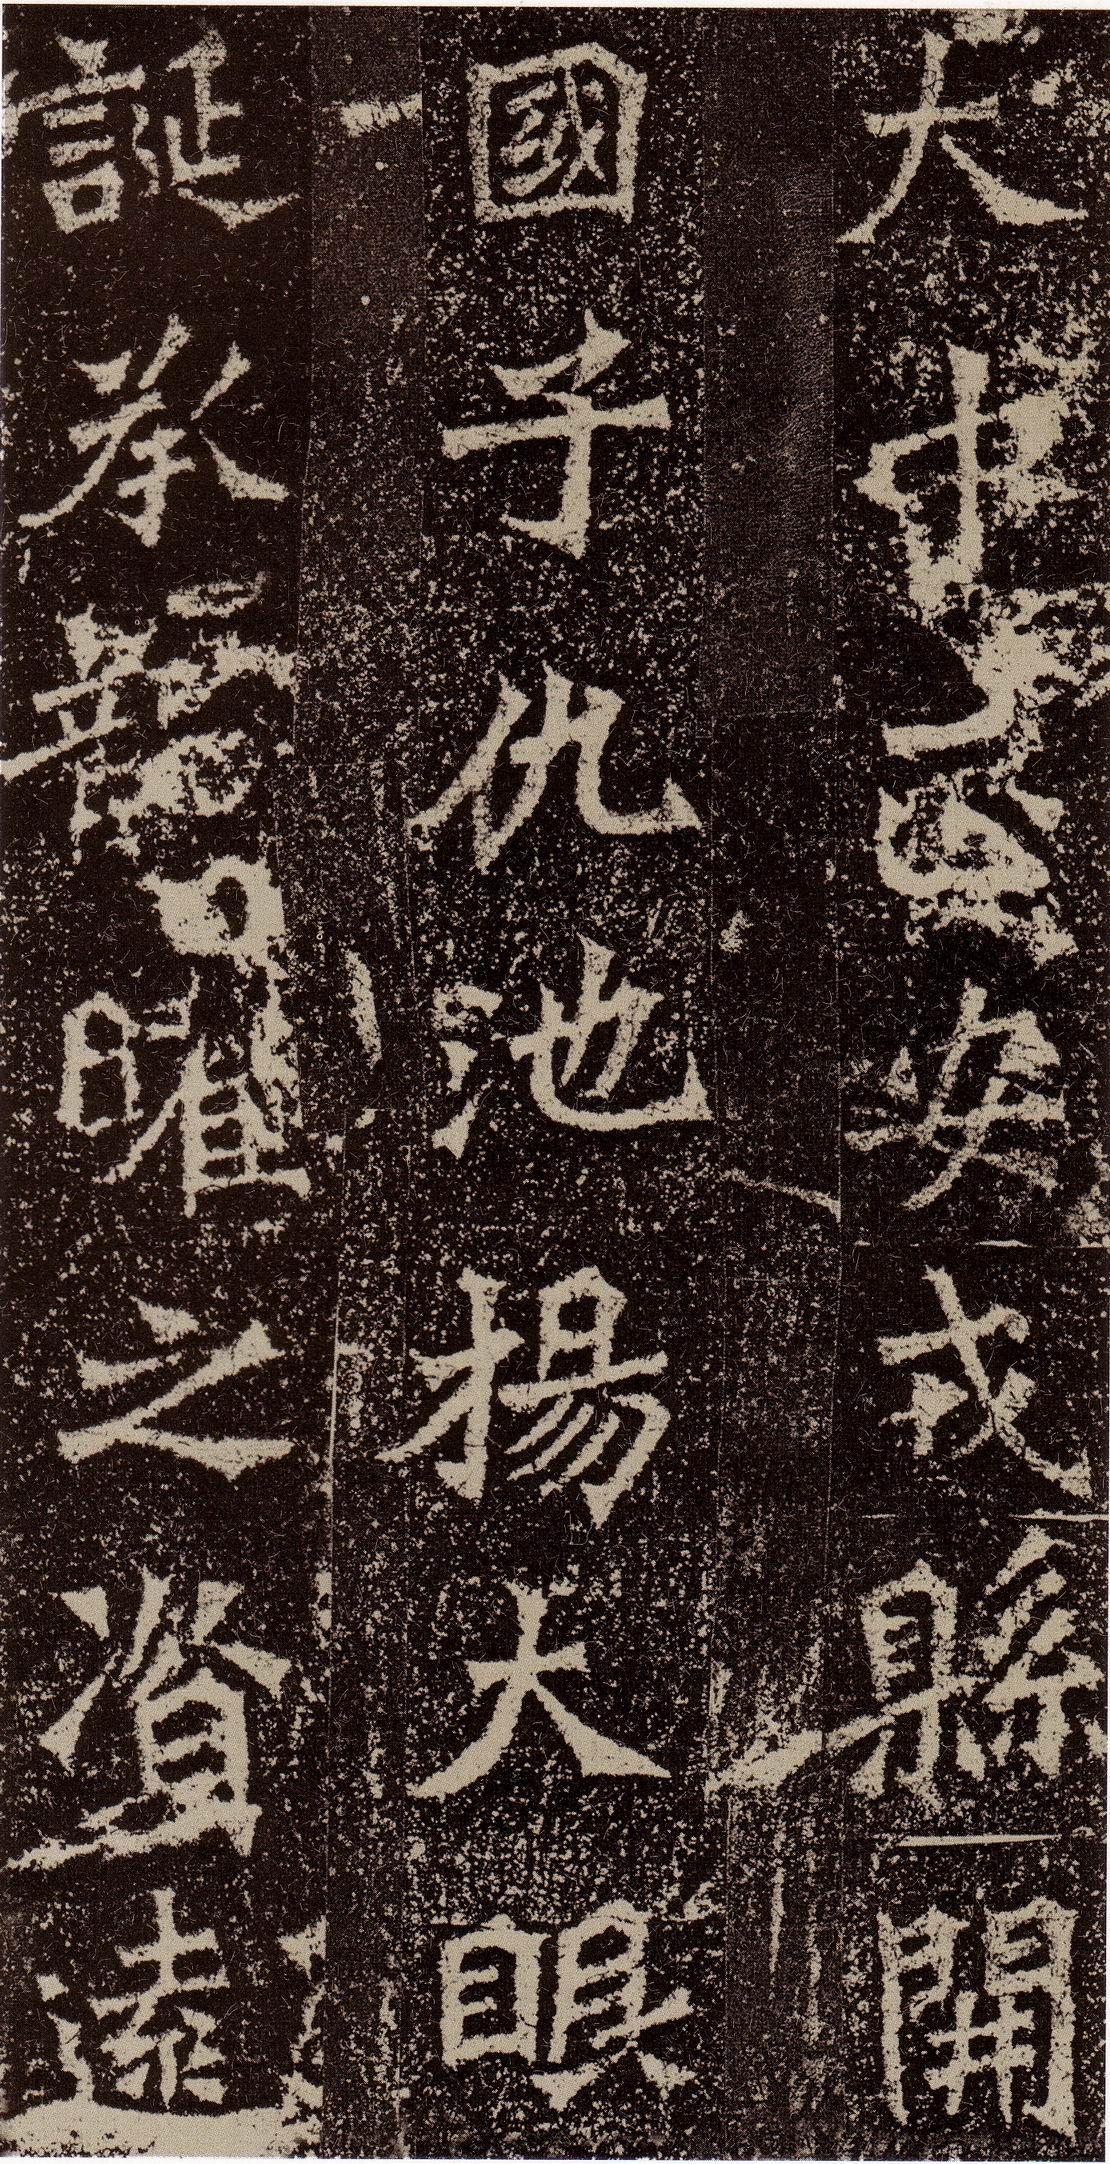 大中正安戎縣開
國子仇池揚大眼
誕承龍曜之資遠